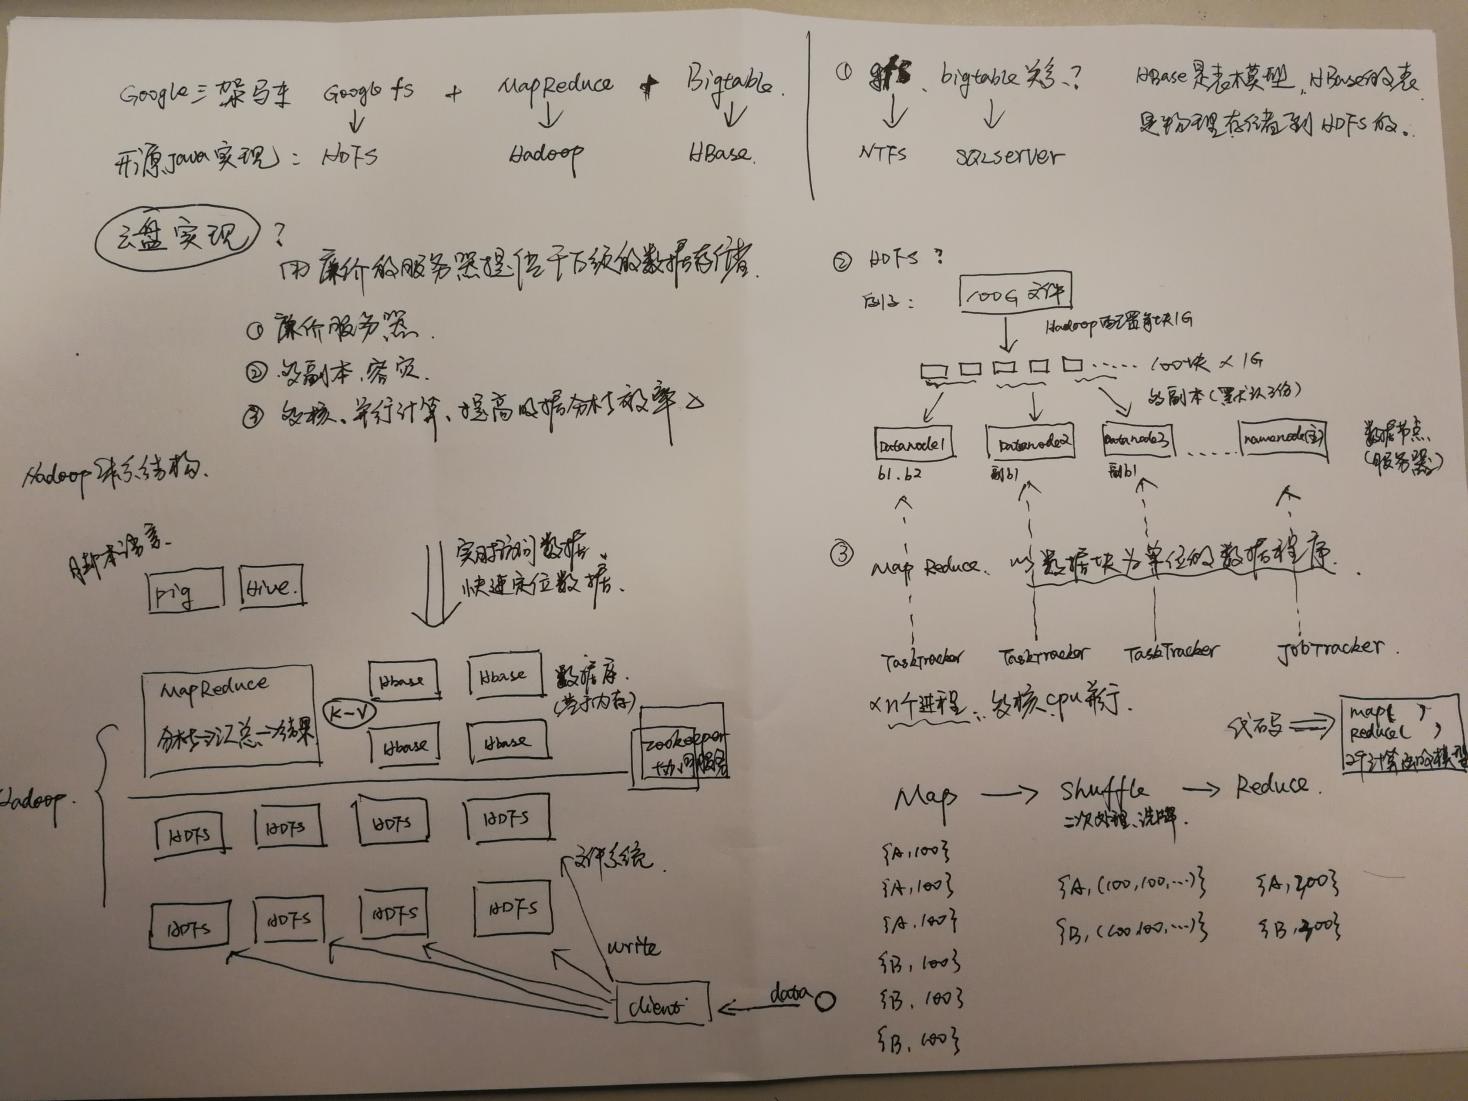 Google三架马车 Google fs + MapReduce + Bigtable
开源Java实现: HDFS Hadoop HBase
云盘实现?
用廉价的服务器提供千万级的数据存储
① 廉价服务器.
② 多副本、容灾.
③ 多核、并行计算、提高数据分析效率
Hadoop体系结构.
脚本语言.
pig Hive.
实时访问数据
快速定位数据.
MapReduce
分析→汇总→结果
K-V
Hbase Hbase
Hbase Hbase
数据库
(基于内存)
zookeeper
协同服务
Hadoop.
HDFS HDFS HDFS HDFS
文件系统.
HDFS HDFS HDFS HDFS
write
client
data
① gfs、bigtable关系?
NTFS SQLserver
HBase是表模型,HBase的表
是物理存储到HDFS的。
② HDFS?
例子:
100G文件
Hadoop配置每块1G
...... 100块×1G
多副本(默认3份)
Datanode1 Datanode2 Datanode3 ...... namenode(主)
b1.b2 副b1 副b1
数据节点
(服务器)
③ Map Reduce. 以数据块为单位的数据程序.
TaskTracker TaskTracker TaskTracker JobTracker.
×n个进程、多核cpu并行.
代码
map( )
reduce( )
2个计算的模型
Map → Shuffle → Reduce.
二次处理、洗牌.
{A,100}
{A,100} {A,(100,100,...)} {A,300}
{A,100} {B,(100,100,...)} {B,300}
{B,100}
{B,100}
{B,100}